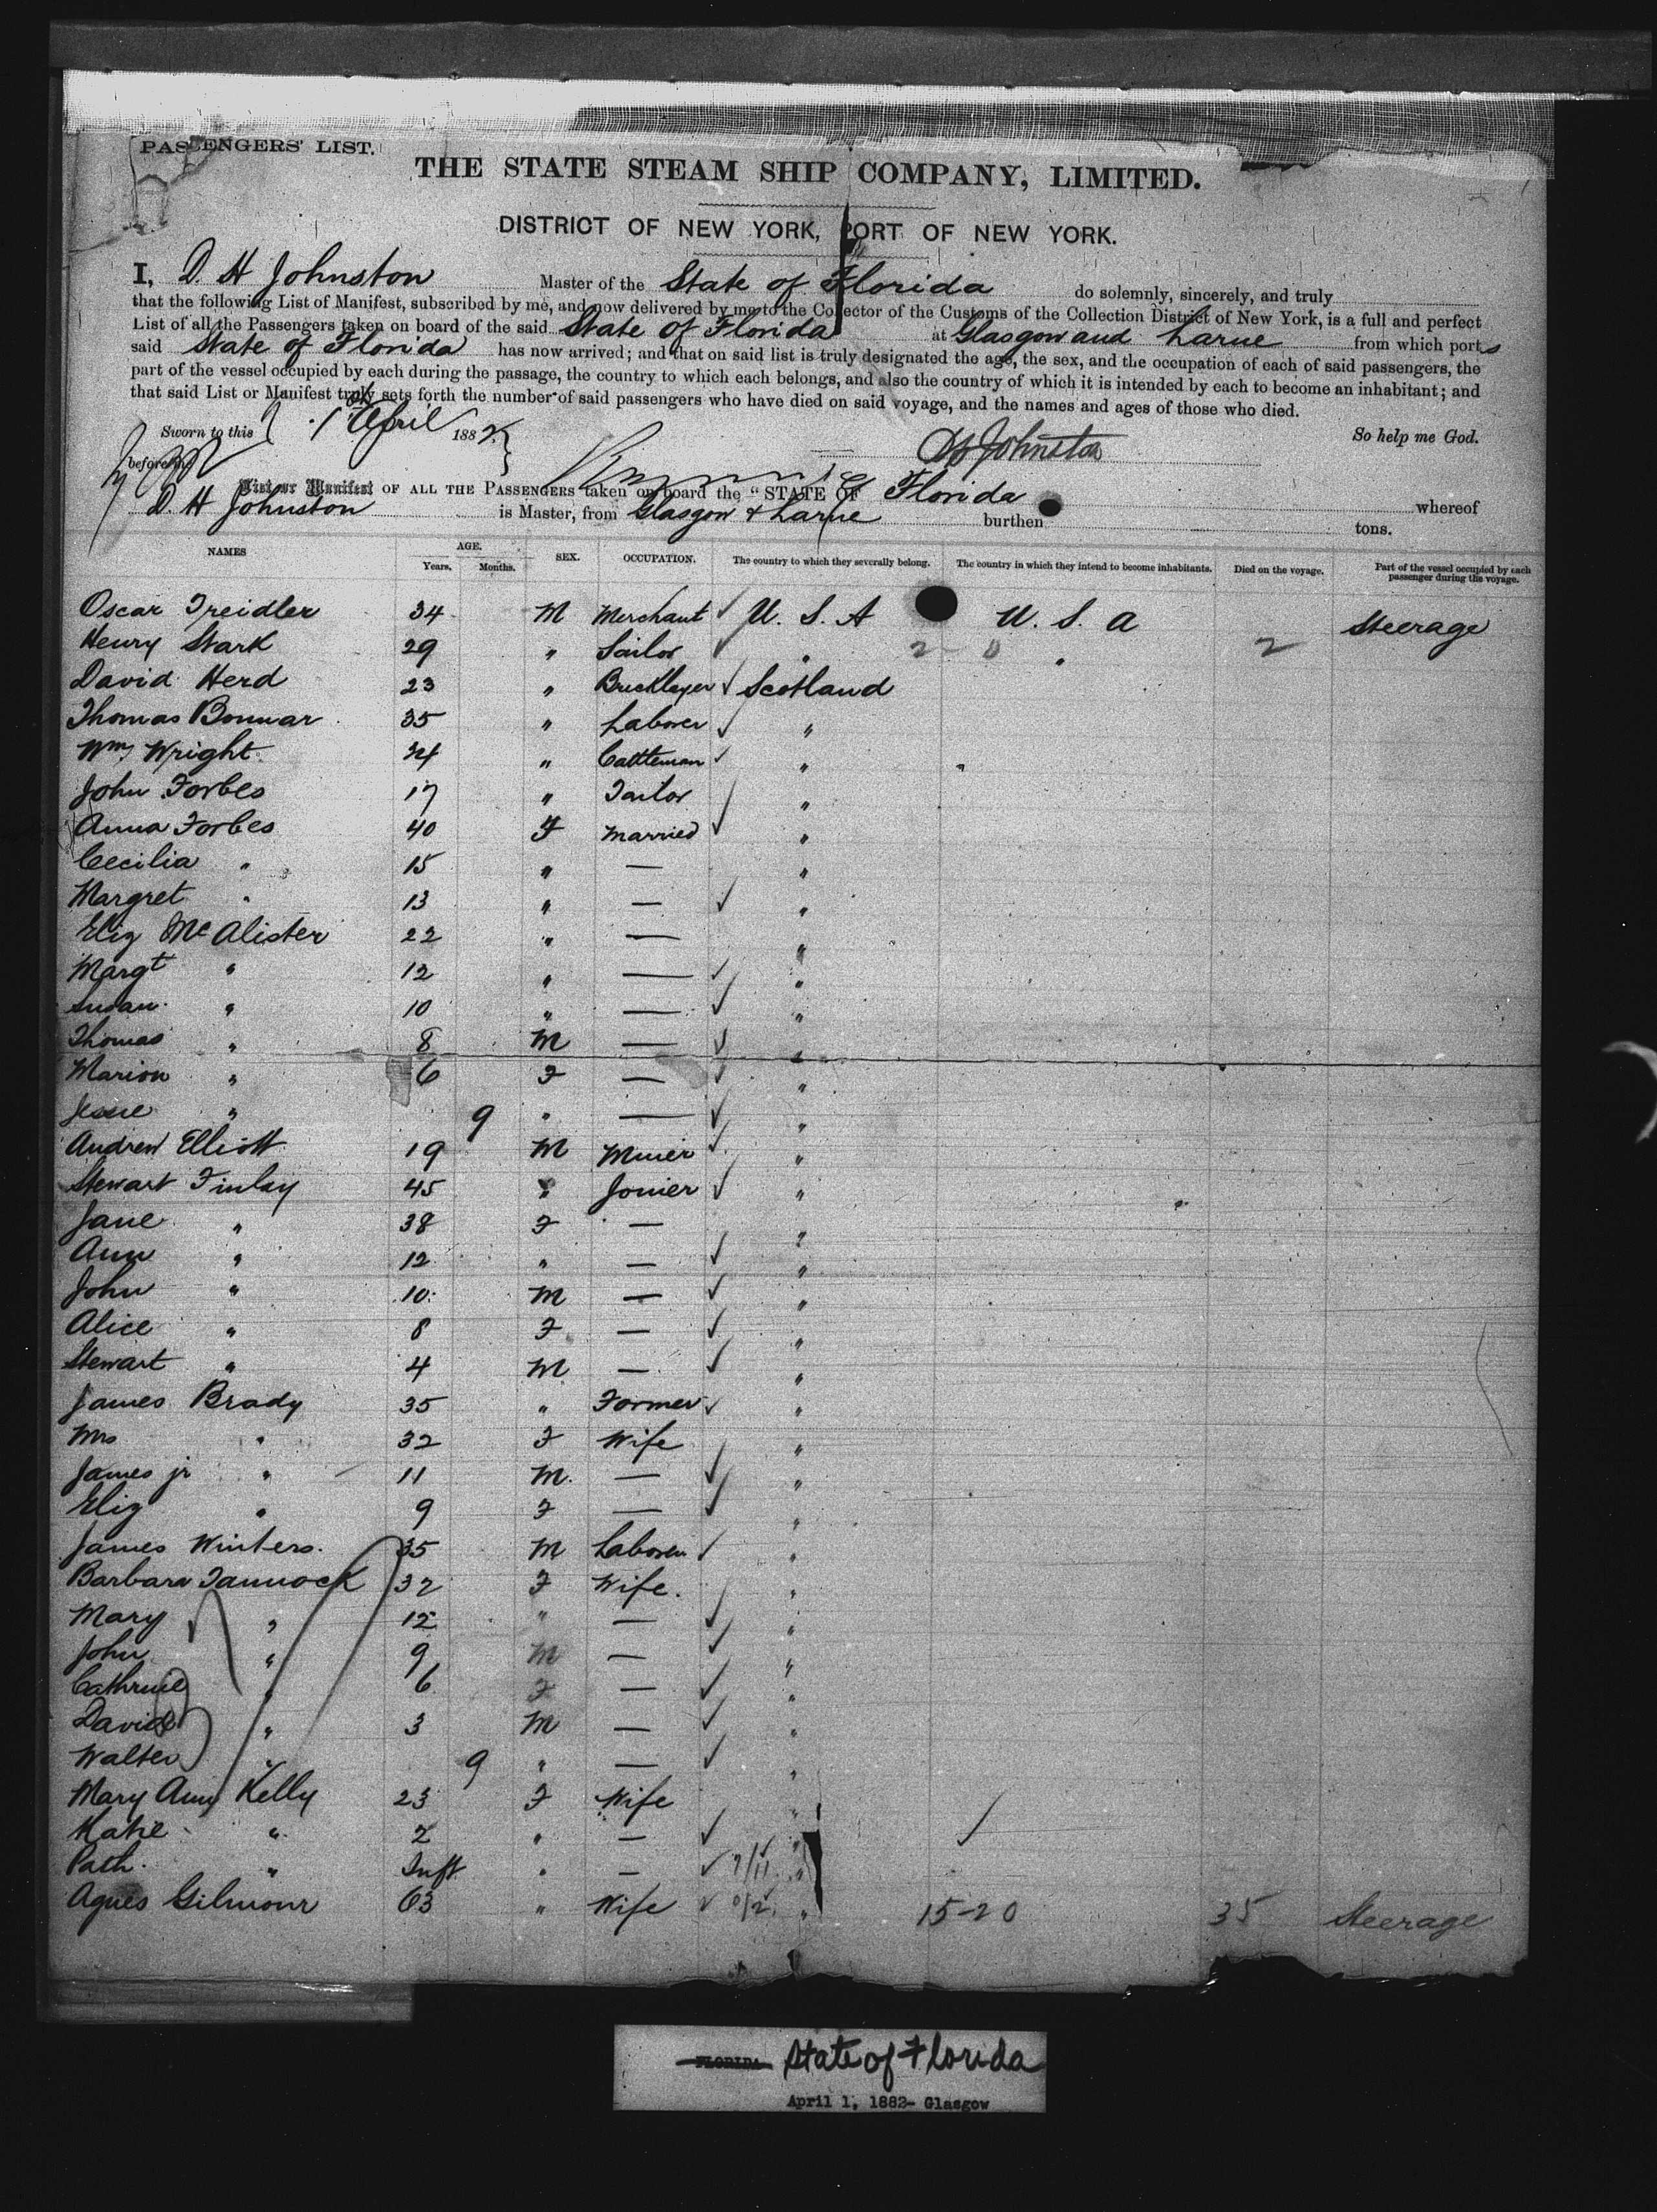 PASSENGERS' LIST.
THE STATE STEAM SHIP COMPANY, LIMITED.
DISTRICT OF NEW YORK, PORT OF NEW YORK.
I, D. H Johnston Master of the State of Florida do solemnly, sincerely, and truly
that the following List of Manifest, subscribed by me, and now delivered by me to the Collector of the Customs of the Collection District of New York, is a full and perfect
List of all the Passengers taken on board of the said State of Florida at Glasgow and Larne from which ports
said State of Florida has now arrived; and that on said list is truly designated the age, the sex, and the occupation of each of said passengers, the
part of the vessel occupied by each during the passage, the country to which each belongs, and also the country of which it is intended by each to become an inhabitant; and
that said List or Manifest truly sets forth the number of said passengers who have died on said voyage, and the names and ages of those who died.
Sworn to this 1 April 1882. So help me God.
before me D H Johnston
List or Manifest OF ALL THE PASSENGERS taken on board the "STATE OF Florida whereof
D. H Johnston is Master, from Glasgow & Larne burthen tons.
NAMES AGE. Years. Months. SEX. OCCUPATION. The country to which they severally belong. The country in which they intend to become inhabitants. Died on the voyage. Part of the vessel occupied by each passenger during the voyage.
Oscar Treidler 34 M Merchant ✓ U. S. A U. S. A Steerage
Henry Stark 29 " Sailor ✓ " 2 - 0 " 2
David Herd 23 " Bricklayer ✓ Scotland
Thomas Bonnar 35 " Laborer ✓ "
Wm Wright 24 " Cattleman ✓ " "
John Forbes 17 " Tailor ✓ "
Anna Forbes 40 F Married ✓ "
Cecilia " 15 " — "
Margret " 13 " — ✓ "
Eliz McAlister 22 " — "
Margt " 12 " — ✓ "
Susan " 10 " — ✓ "
Thomas " 8 M — ✓ "
Marion " 6 F — ✓ "
Jessie " 9 " — ✓ "
Andrew Elliott 19 M Minier ✓ "
Stewart Finlay 45 " Jonier ✓ "
Jane " 38 F — "
Ann " 12 " — ✓ "
John " 10 M — ✓ "
Alice " 8 F — ✓ "
Stewart " 4 M — ✓ "
James Brady 35 " Former ✓ "
Mrs " 32 F Wife "
James jr " 11 M. — ✓ "
Eliz " 9 F — ✓ "
James Winters. 35 M Laborer ✓ "
Barbara Tannock 32 F Wife. "
Mary " 12 " — ✓ "
John " 9 M — ✓ "
Cathrine " 6 F — ✓ "
David " 3 M — ✓ "
Walter " 9 " — ✓ "
Mary Ann Kelly 23 F Wife " ✓
Katie " 2 " — ✓ "
Path. " Inft " — ✓ 7/11 "
Agnes Gilmour 63 " Wife ✓ 0/2 " 15-20 35 Steerage
FLORIDA State of Florida
April 1, 1882- Glasgow